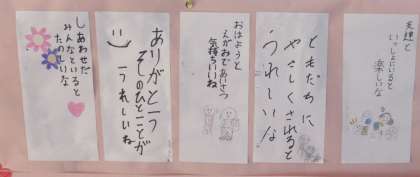 友達と
いっしょにいると
楽しいな
ともだちに
やさしくされると
うれしいな
おはようと
えがおであいさつ
気持ちいいね
ありがとう
そのひとことが
うれしいね
しあわせだ
みんなといると
たのしいな